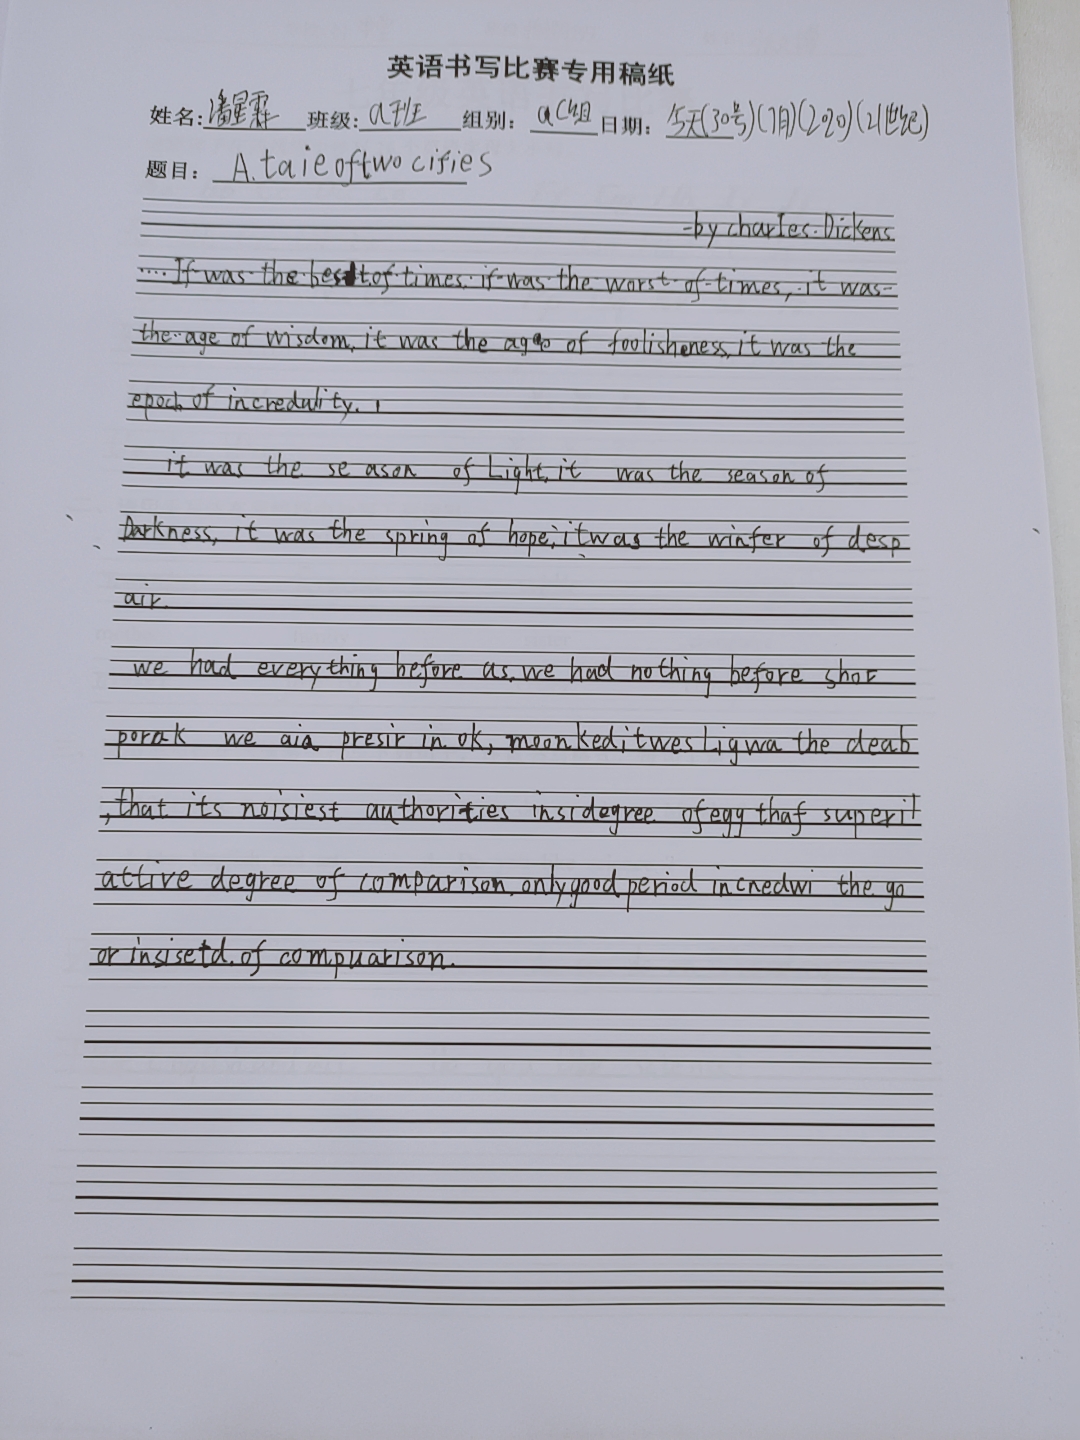 英语书写比赛专用稿纸
姓名: 潘星霖 班级: a班 组别: a组 日期: 今天(30号)(7月)(2020)(21世纪)
题目: A. taieoftwo cifies
-by charles. Dickens
.... If was the best of times. if was the worst of times, it was
the age of wisdom, it was the age of foolisheness, it was the
epoch of incredulity.
it was the se ason of Light, it was the season of
Darkness, it was the spring of hope; itwas the winfer of desp
air.
we had everything before us, we had nothing before shor
porak we aia presir in ok, moonked; itwes Ligwa the deab
, that its noisiest authorities insidegree ofegg thaf superit
attive degree of comparison. onlygood period incnedwi the go
or insisetd. of compuarison.